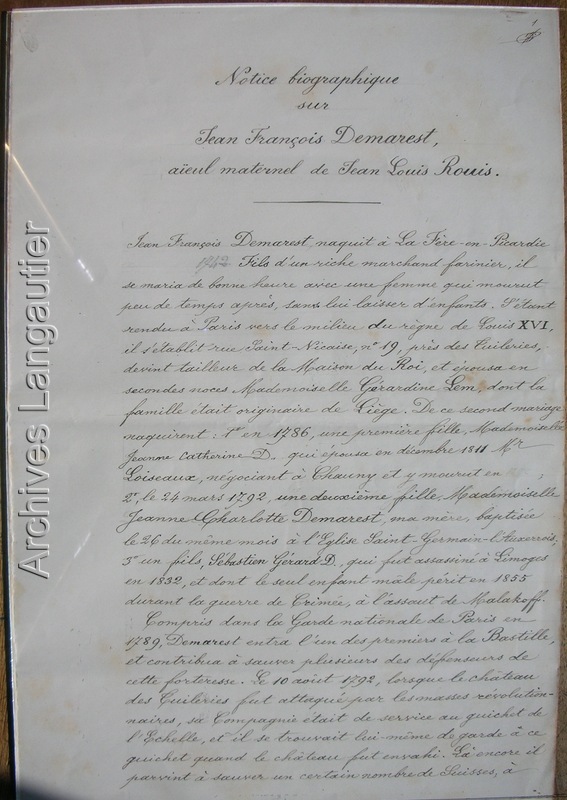 Notice biographique
sur
Jean François Demarest,
aïeul maternel de Jean Louis Rouis.
Jean François Demarest, naquit à La Fère-en-Picardie
1742 Fils d'un riche marchand farinier, il
se maria de bonne heure avec une femme qui mourut
peu de temps après, sans lui laisser d'enfants. S'étant
rendu à Paris vers le milieu du règne de Louis XVI,
il s'établit rue Saint-Nicaise, n° 19, près des Tuileries,
devint tailleur de la Maison du Roi, et épousa en
secondes noces Mademoiselle Gérardine Lem, dont la
famille était originaire de Liège. De ce second mariage
naquirent : 1° en 1786, une première fille, Mademoiselle
Jeanne Catherine D. qui épousa en décembre 1811 Mr
Loiseaux, négociant à Chauny et y mourut en ;
2°, le 24 mars 1792, une deuxième fille, Mademoiselle
Jeanne Charlotte Demarest, ma mère, baptisée
le 26 du même mois à l'Eglise Saint-Germain-l'Auxerrois;
3° un fils, Sébastien Gérard D., qui fut assassiné à Limoges
en 1832, et dont le seul enfant mâle périt en 1855
durant la guerre de Crimée, à l'assaut de Malakoff.
Compris dans la Garde nationale de Paris en
1789, Demarest entra l'un des premiers à la Bastille,
et contribua à sauver plusieurs des défenseurs de
cette forteresse. Le 10 août 1792, lorsque le château
des Tuileries fut attaqué par les masses révolution-
naires, sa Compagnie était de service au guichet de
l'Echelle, et il se trouvait lui-même de garde à ce
guichet quand le château fut envahi. Là encore il
parvint à sauver un certain nombre de Suisses, à
Archives Langautier